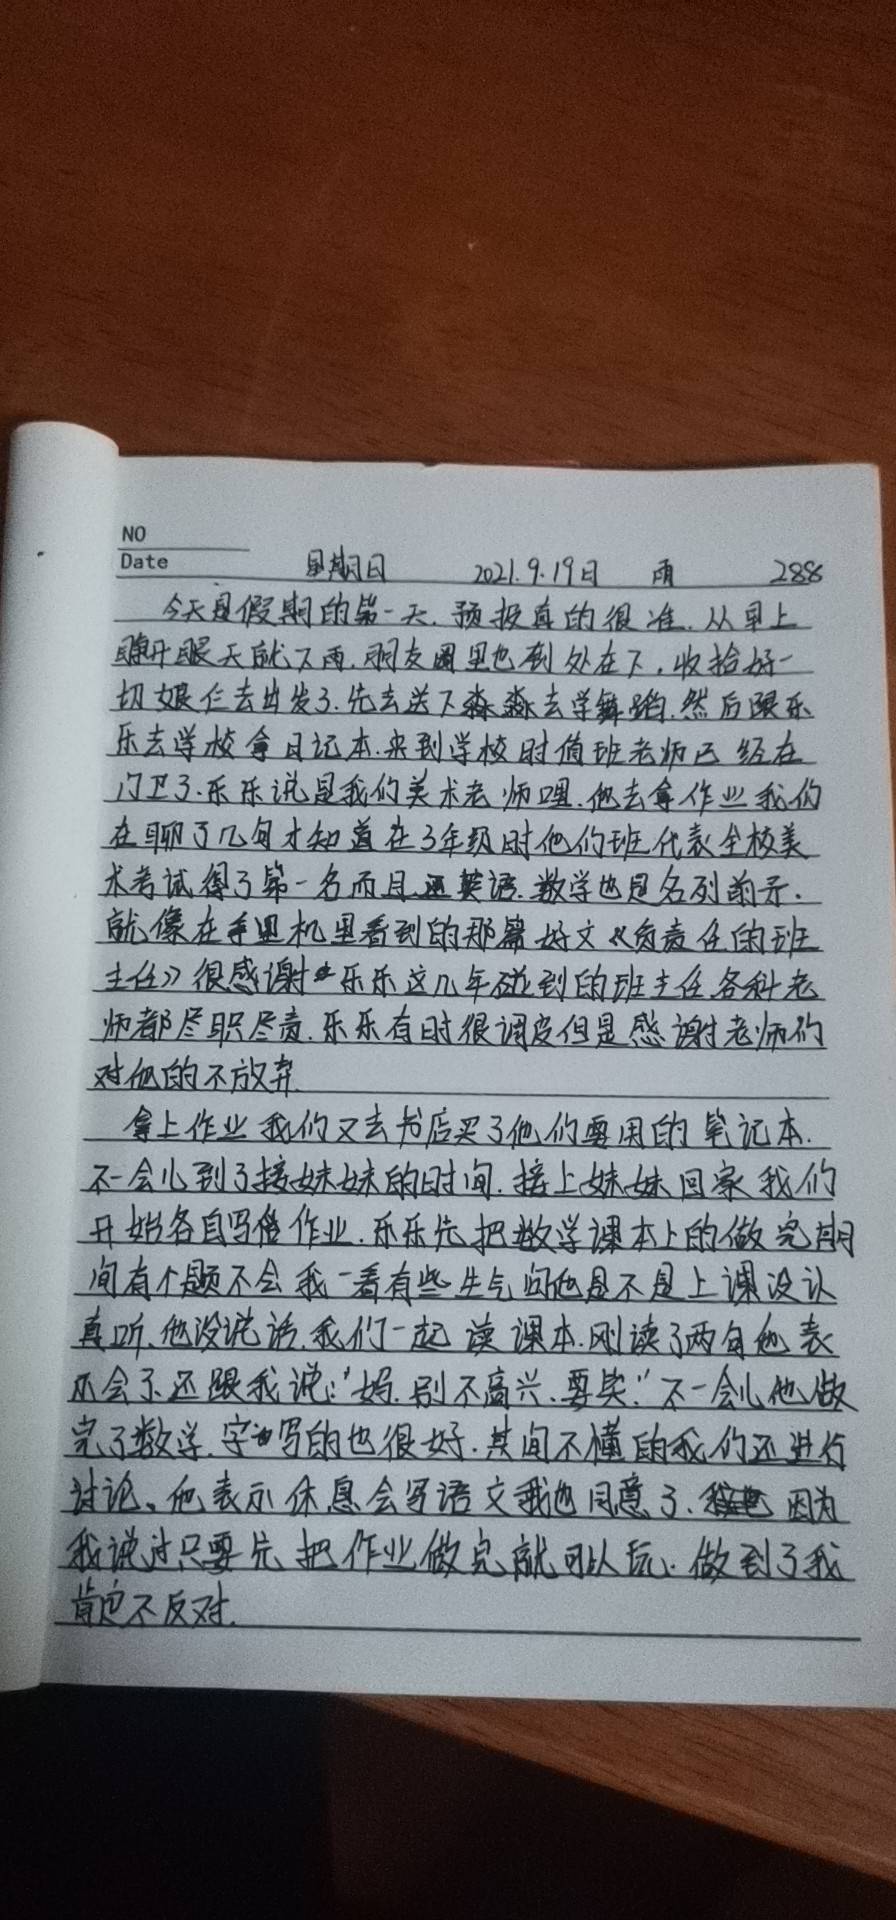 NO
Date 星期日 2021.9.19日 雨 288
今天是假期的第一天.预报真的很准.从早上
睁开眼天就下雨.朋友圈里也到处在下,收拾好一
切娘仨去出发了.先去送下淼淼去学舞蹈.然后跟乐
乐去学校拿日记本.来到学校时值班老师已经在
门卫了.乐乐说是我们美术老师哩.他去拿作业我们
在聊了几句才知道在3年级时他们班代表全校美
术考试得了第一名而且还英语.数学也是名列前茅.
就像在手里机里看到的那篇好文《负责任的班
主任》很感谢乐乐这几年碰到的班主任各科老
师都尽职尽责.乐乐有时很调皮但是感谢老师们
对他的不放弃.
拿上作业我们又去书店买了他们要用的笔记本.
不一会儿到了接妹妹的时间.接上妹妹回家我们
开始各自写作业.乐乐先把数学课本上的做完期
间有个题不会我一看有些生气问他是不是上课没认
真听.他没说话.我们一起读课本.刚读了两句他表
示会了还跟我说:"妈.别不高兴.要笑."不一会儿他做
完了数学.字写的也很好.其间不懂的我们还进行
讨论。他表示休息会写语文我也同意了.因为
我说过只要先把作业做完就可以玩.做到了我
肯定不反对.